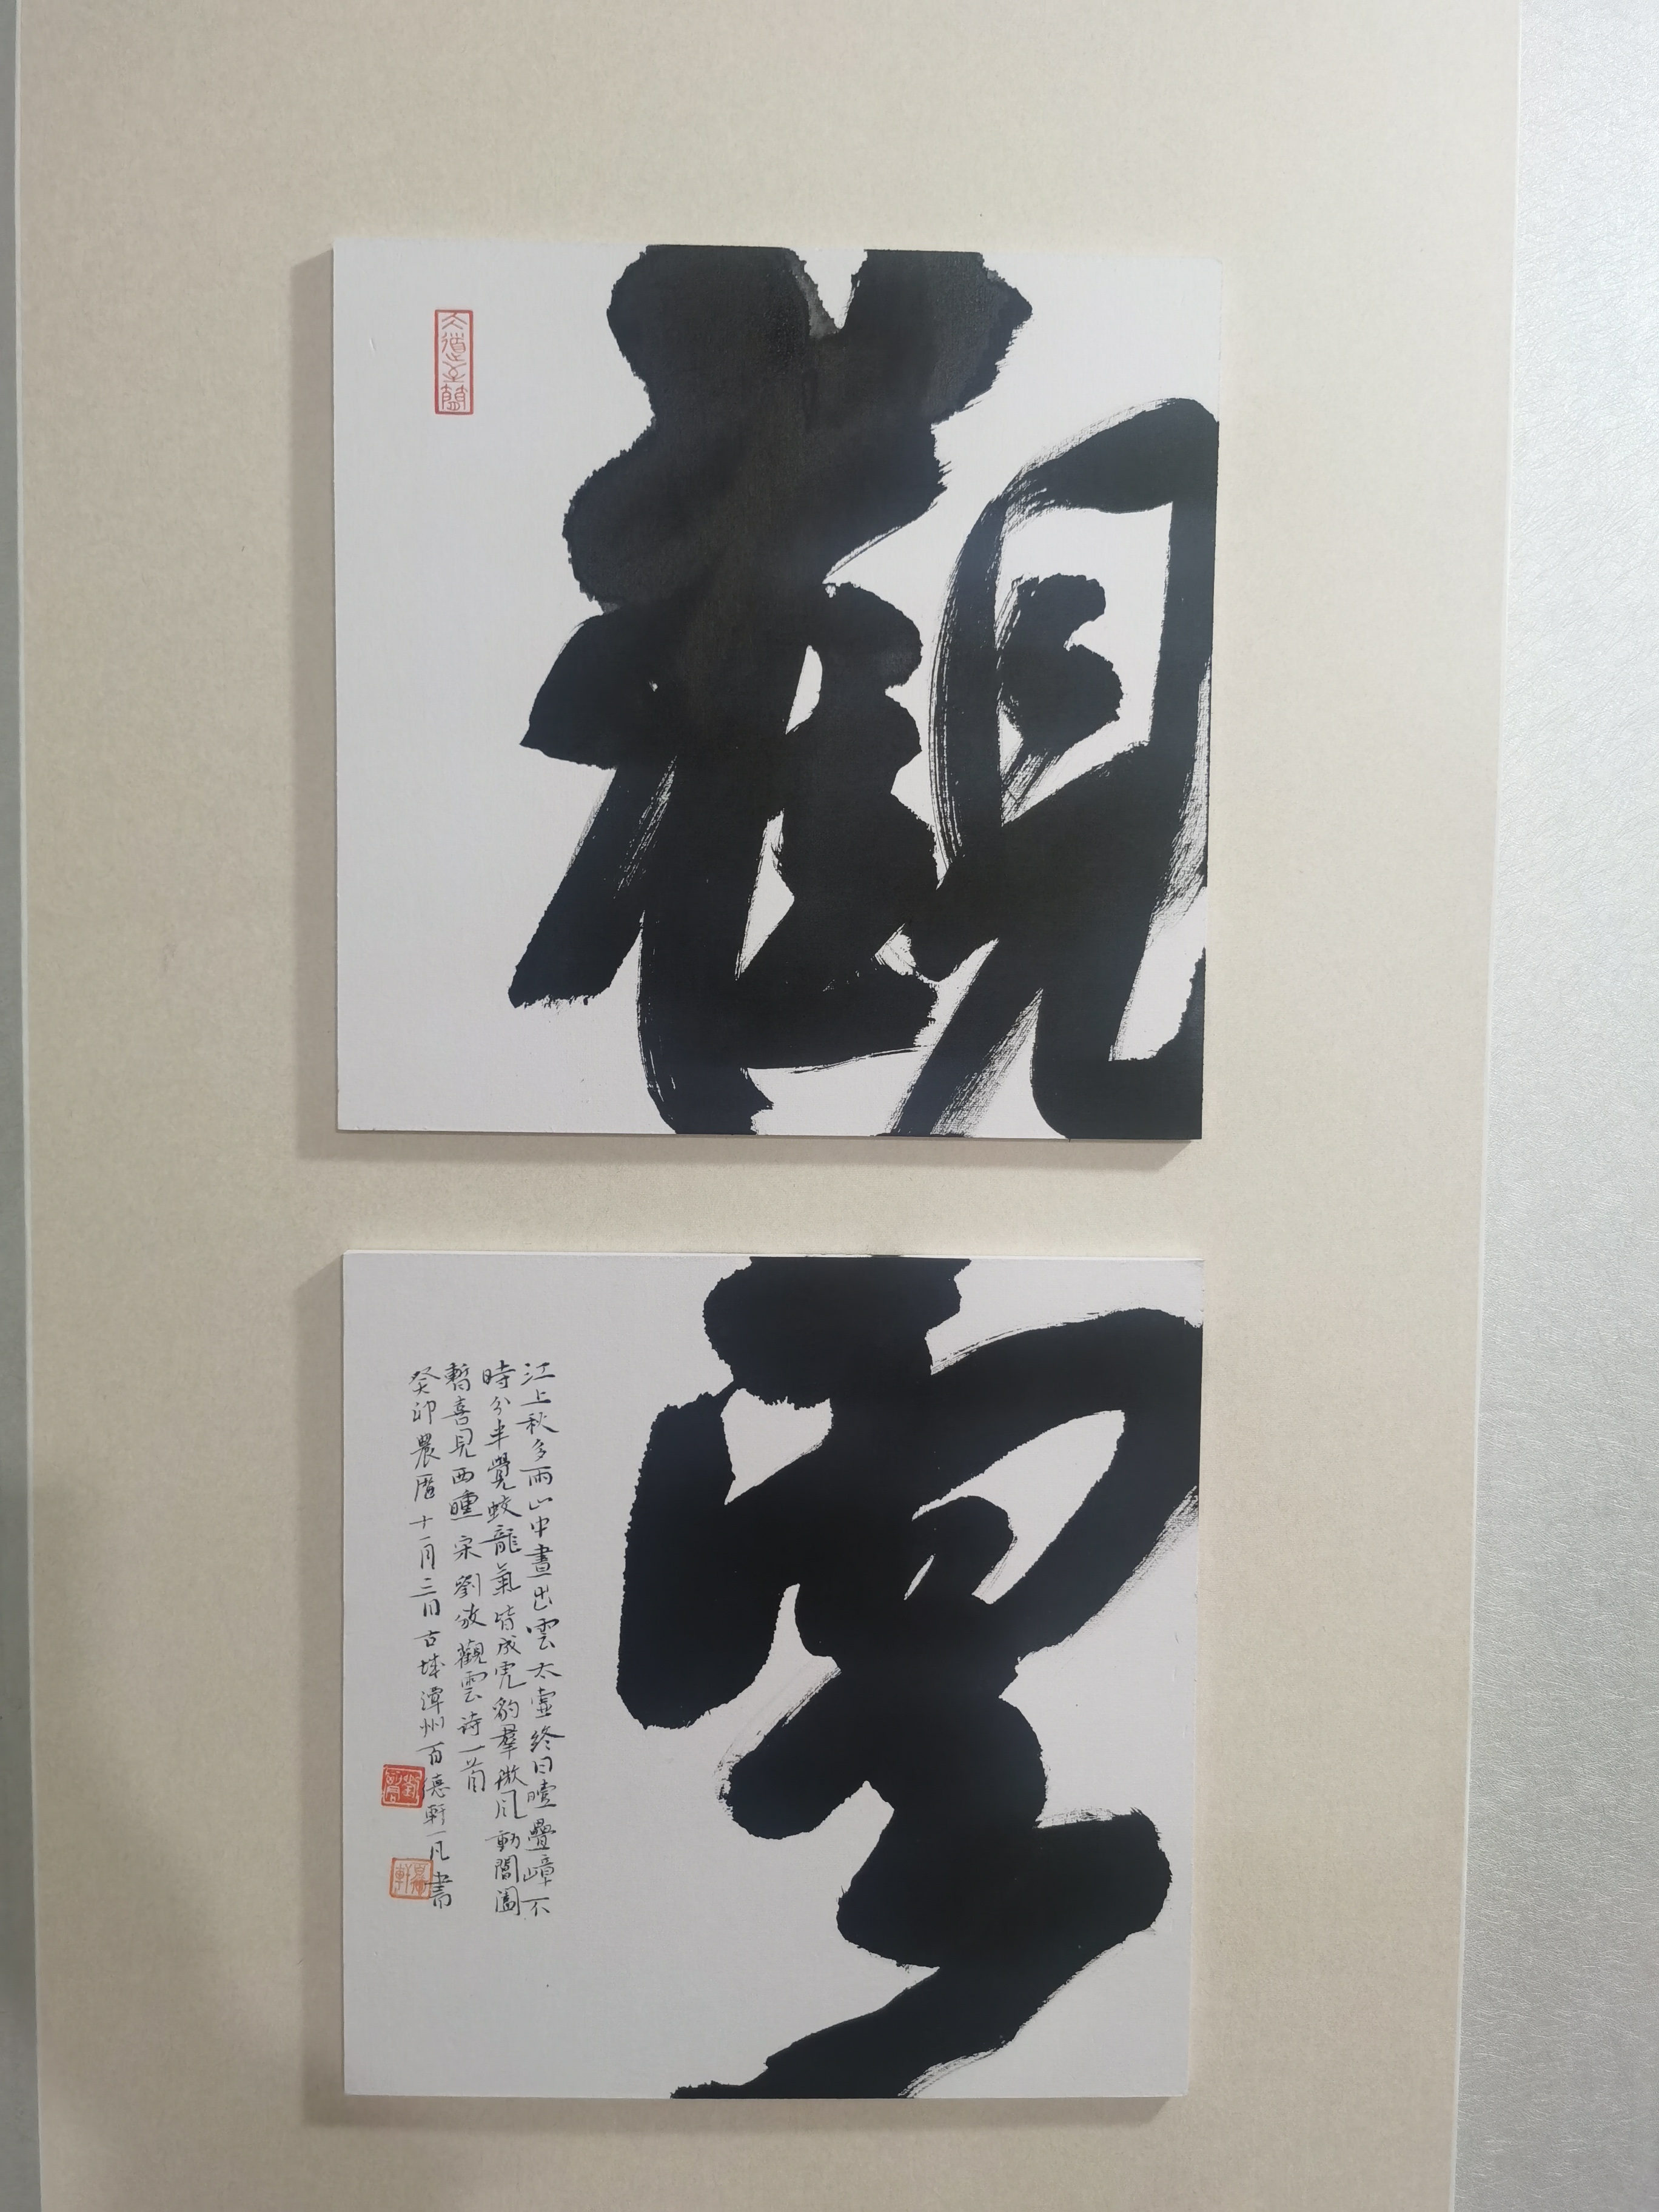 觀
大道至簡
雲
江上秋多雨山中晝出雲太虛終日曀疊嶂不
時分半覺蛟龍氣皆成虎豹羣微風動閶闔
暫喜見西曛宋劉攽觀雲詩一首
癸卯農曆十一月三日古城潭州百德軒一凡書